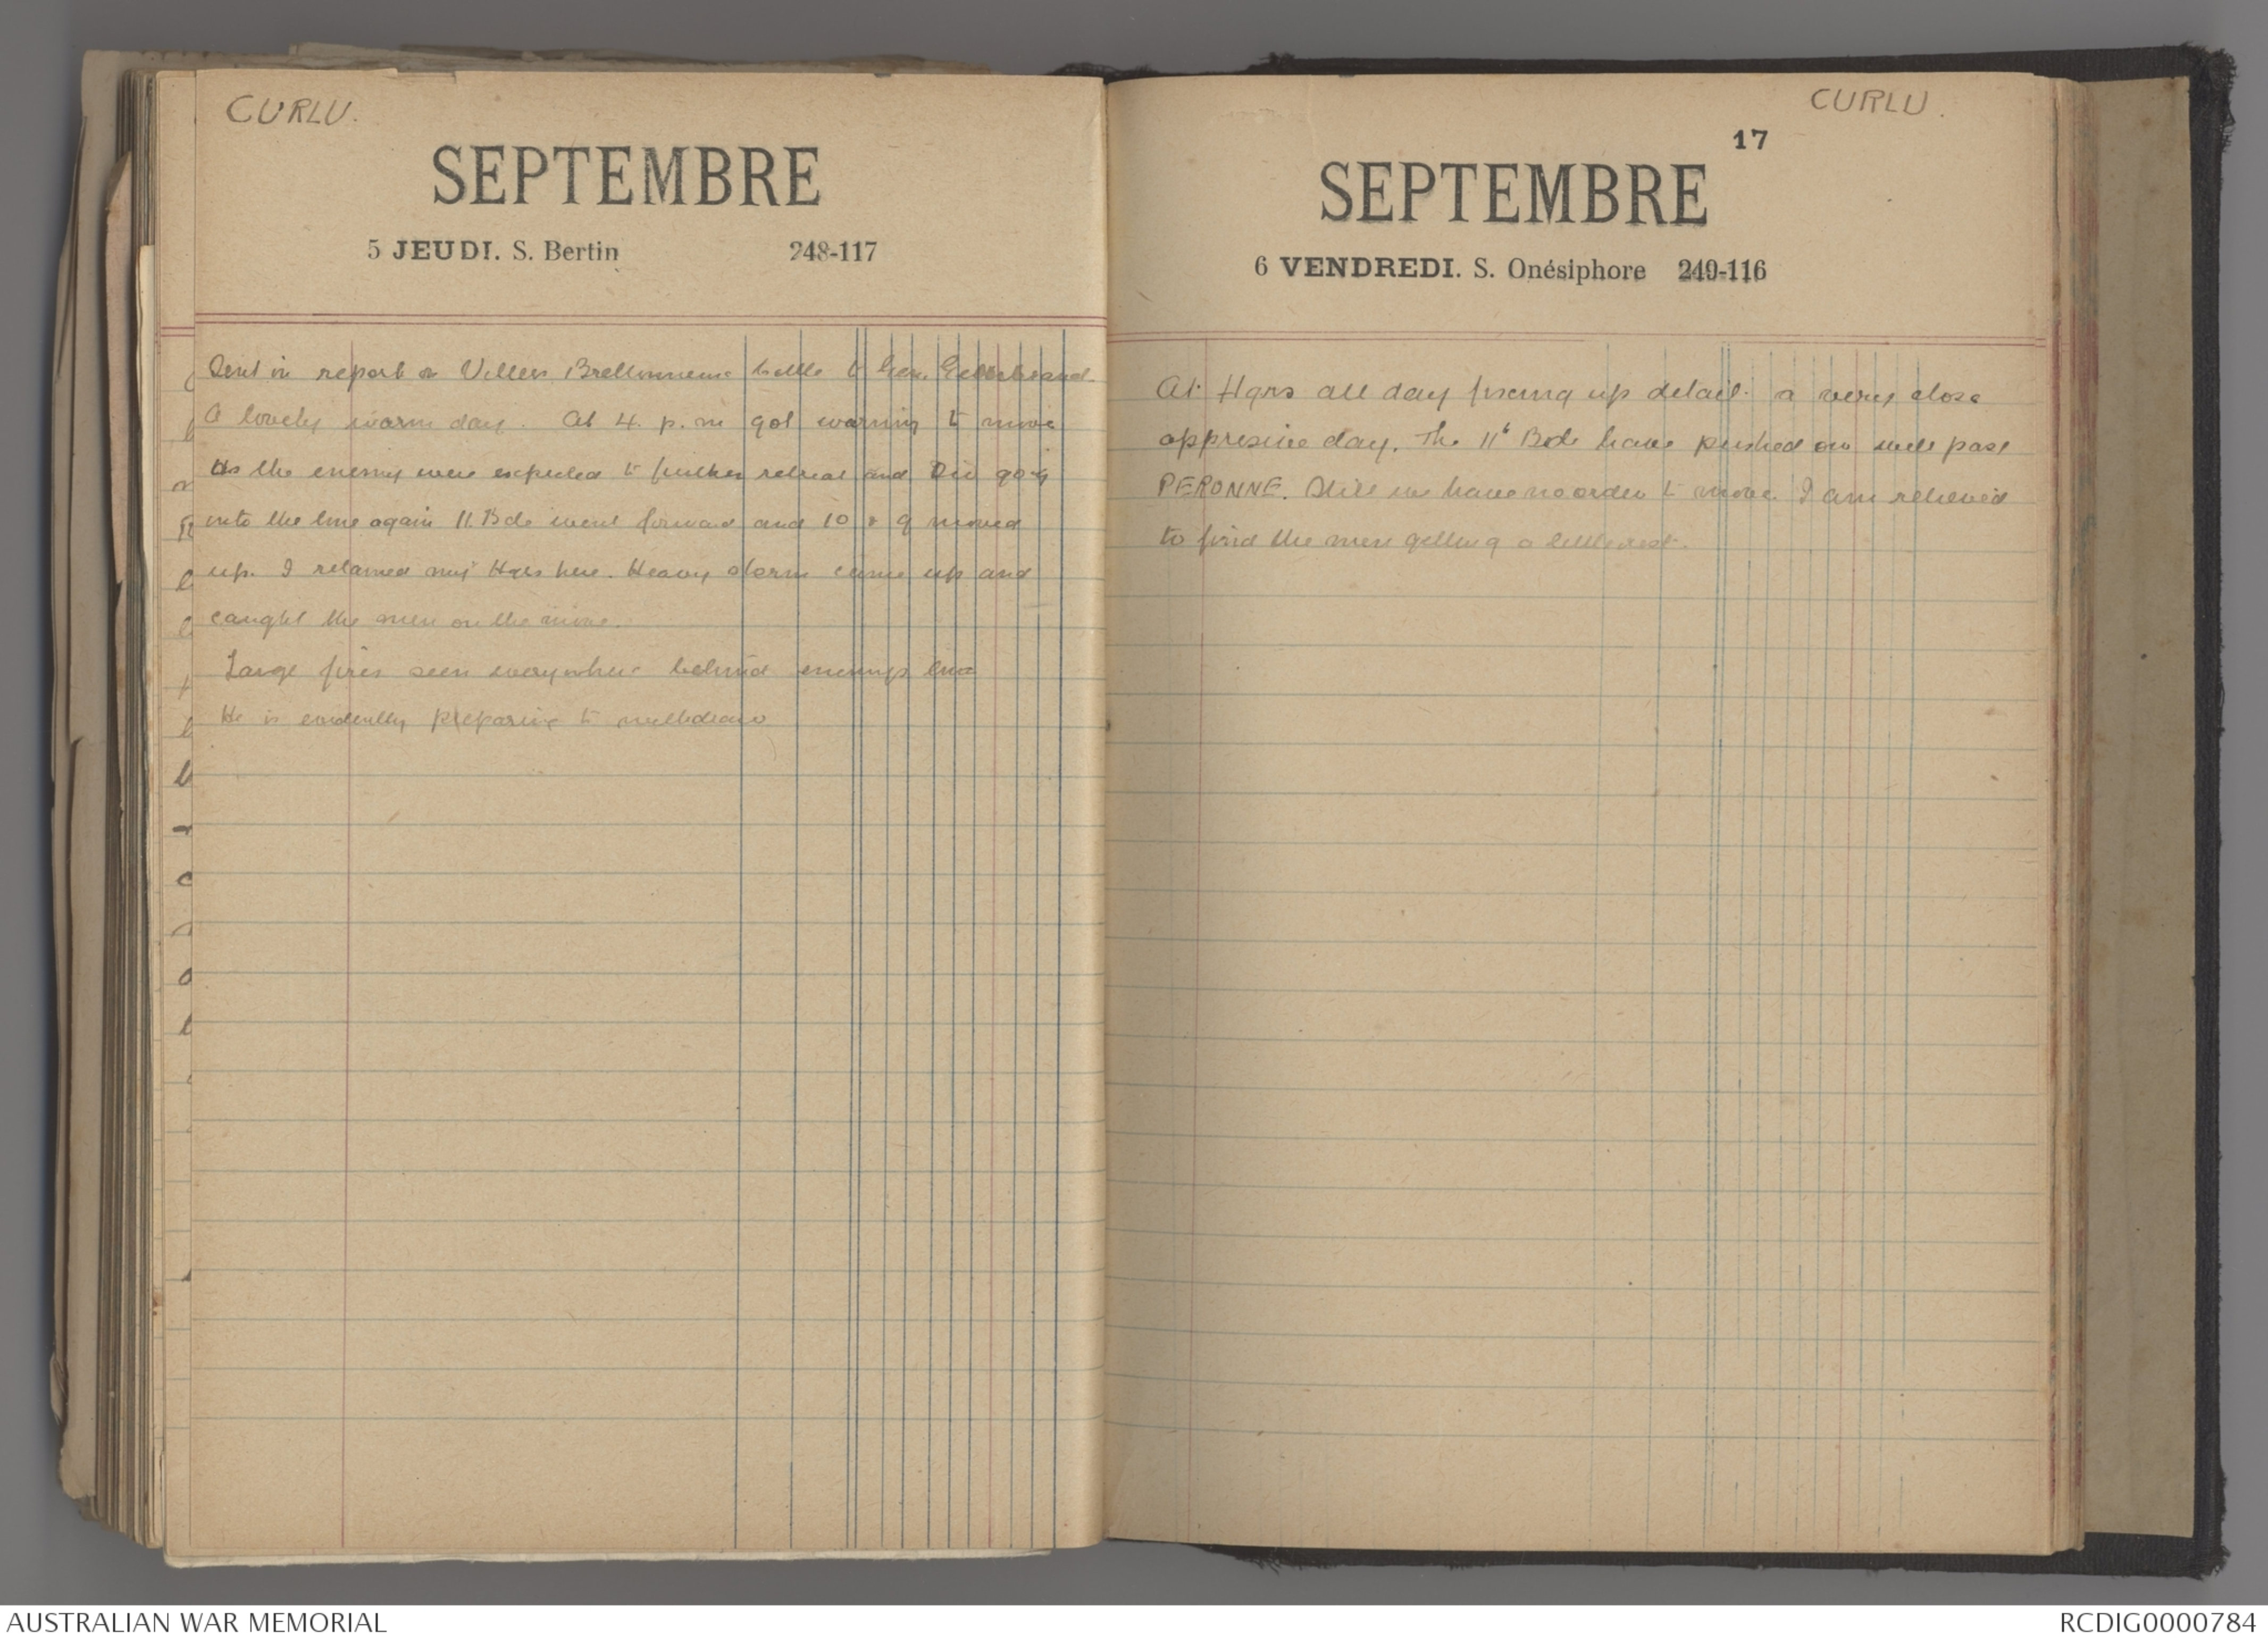 CURLU.
SEPTEMBRE
5 JEUDI. S. Bertin 248-117
Sent in report on Villers Brettonneux battle to Gen. Gellibrand.
A lovely warm day. At 4. p.m got warning to move
As the enemy were expected to further retreat and Div going
into the line again 11. Bde went forward and 10 & 9 moved
up. I retained my Hqrs here. Heavy storm came up and
caught the men on the move.
Large fires seen everywhere behind enemys line
He is evidently preparing to withdraw
CURLU.
17
SEPTEMBRE
6 VENDREDI. S. Onésiphore 249-116
At Hqrs all day fixing up detail. a very close
oppresive day. The 11th Bde have pushed on well past
PERONNE. Still we have no orders to move. I am relieved
to find the men getting a little rest.
AUSTRALIAN WAR MEMORIAL
RCDIG0000784